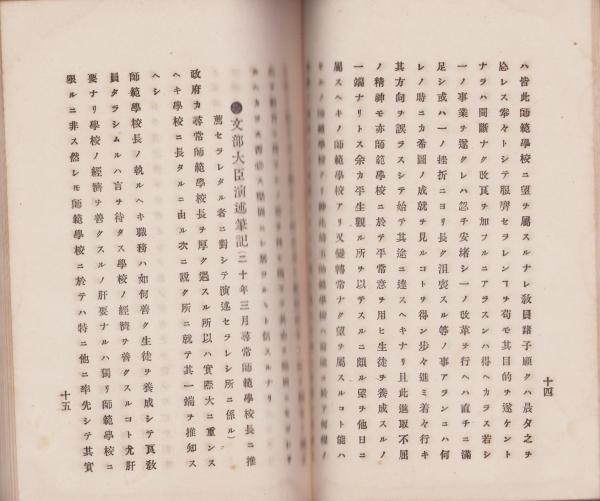 ハ皆此師範學校ニ望ヲ屬スルナレ敎員諸子顧クハ晨夕之ヲ
忘レス孶々トシテ服膺セラレンヿヲ苟モ其目的ヲ遂ケント
ナラハ間斷ナク改良ヲ加フルニアラスンハ得ヘカラス若シ
一ノ事業ヲ遂クレハ忽チ安緖シ一ノ改革ヲ行ヘハ直チニ滿
足シ或ハ一ノ挫折ニヨリ長ク沮喪スル等ノ事アランニハ何
レノ時ニカ希圖ノ成就ヲ見ルコトヲ得ン歩々進ミ着々行キ
其方向ヲ誤ラスシテ始テ其途ニ達スヘキナリ且此進取不屈
ノ精神モ亦師範學校ニ於テ平常意ヲ用ヒ生徒ヲ養成スルノ
一端ナリトス余カ平生觀ル所ヲ以テスルニ頗ル望ヲ他日ニ
屬スヘキノ師範學校アリ又變轉常ナク望ヲ屬スルコト能ハ
十四
●文部大臣演述筆記
二十年三月尋常師範學校長ニ推
薦セラレタル者ニ對シテ演述セラレシ所ニ係ル)
政府カ尋常師範學校長ヲ厚ク遇スル所以ハ實際大ニ重ンス
ヘキ學校ニ長タルニ由ル次ニ說ク所ニ就テ其一端ヲ推知ス
ヘシ
師範學校長ノ執ルヘキ職務ハ如何善ク生徒ヲ養成シテ良敎
員タラシムルハ言ヲ待タス學校ノ經濟ヲ善クスルコト尤肝
要ナリ學校ノ經濟ヲ善クスルノ肝要ナルハ獨リ師範學校ニ
學ルニ非ス然シモ師範學校ニ於テハ特ニ他ニ率先シテ其實
十五